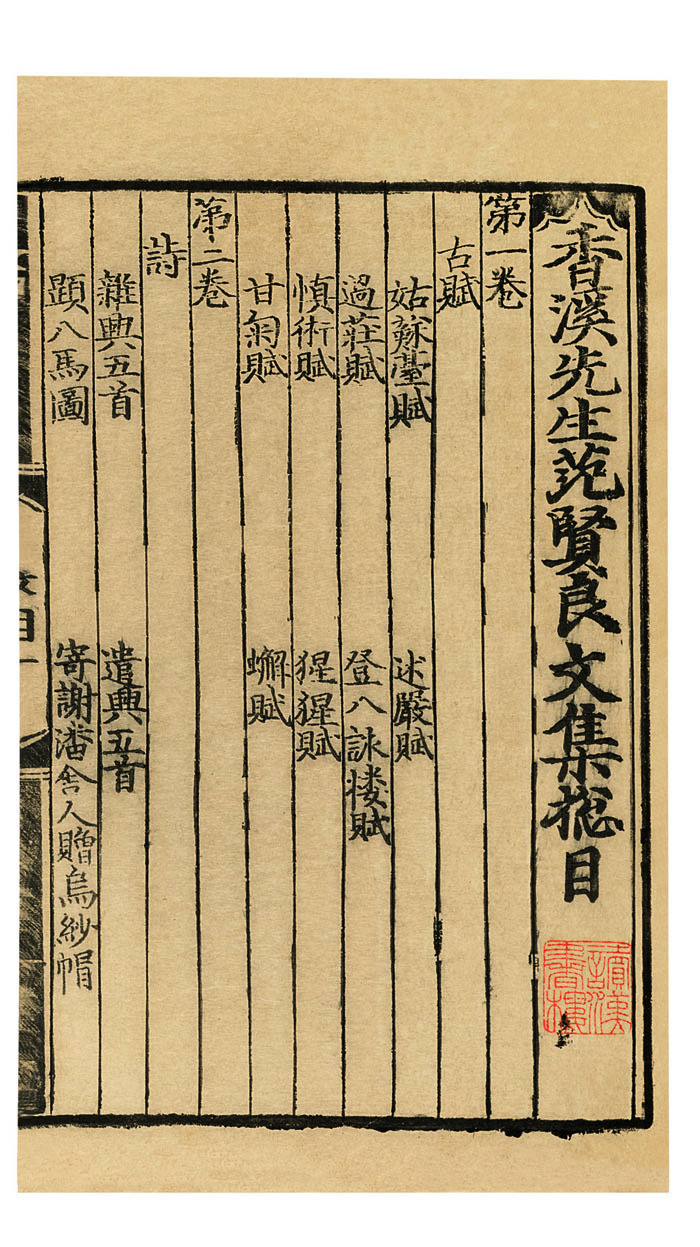 香溪先生范賢良文集揔目
讀漢
書樓
第一卷
古賦
姑蘇臺賦 述嚴賦
過莊賦 登八詠楼賦
慎術賦 猩猩賦
甘菊賦 蠏賦
第二卷
詩
雜興五首 遣興五首
題八馬圖 寄謝潘舍人贈烏紗帽